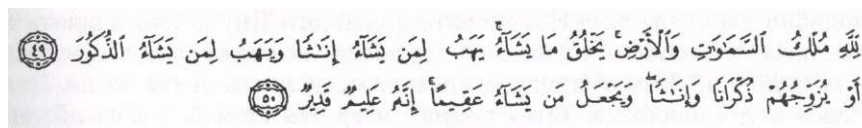 لِّلَّهِ مُلْكُ السَّمَٰوَٰتِ وَالْأَرْضِ ۚ يَخْلُقُ مَا يَشَآءُ ۚ يَهَبُ لِمَن يَشَآءُ إِنَٰثًا وَيَهَبُ لِمَن يَشَآءُ الذُّكُورَ ﴿٤٩﴾
أَوْ يُزَوِّجُهُمْ ذُكْرَانًا وَإِنَٰثًا ۖ وَيَجْعَلُ مَن يَشَآءُ عَقِيمًا ۚ إِنَّهُ عَلِيمٌ قَدِيرٌ ﴿٥٠﴾